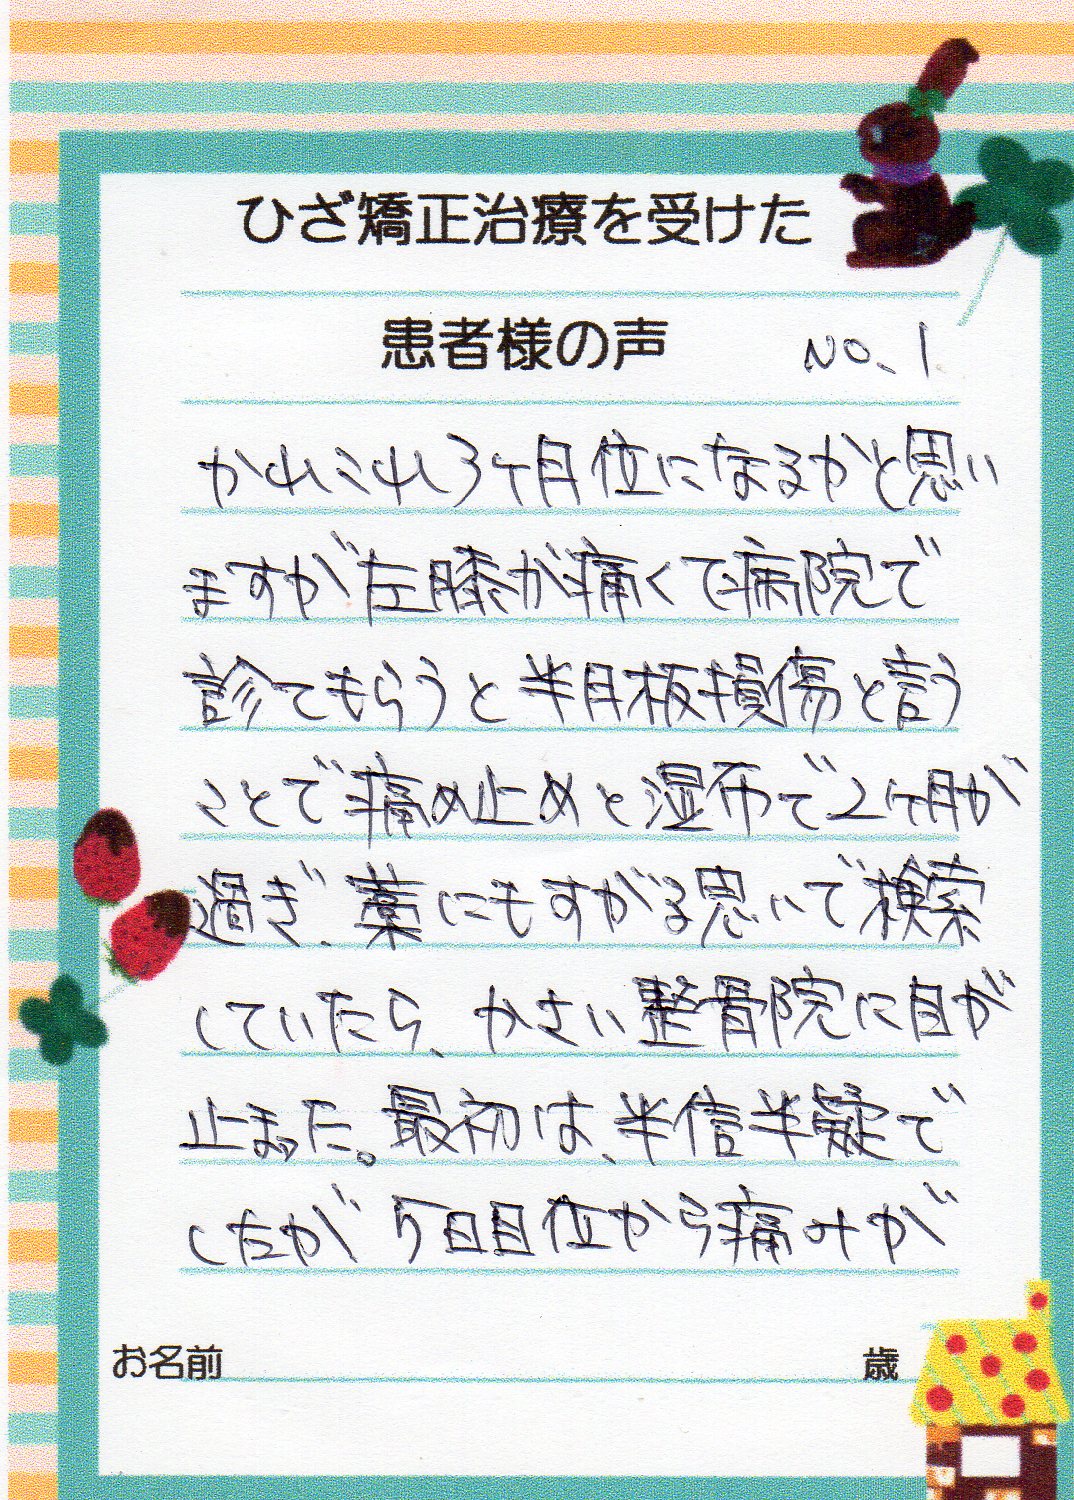 ひざ矯正治療を受けた
患者様の声 NO.1
かれこれ3ヶ月位になるかと思い
ますが左膝が痛くて病院で
診てもらうと半月板損傷と言う
ことで痛め止めと湿布で2ヶ月が
過ぎ、薬にもすがる思いで検索
していたら、かさい整骨院に目が
止まった。最初は、半信半疑で
したが5日目位から痛みが
お名前 歳